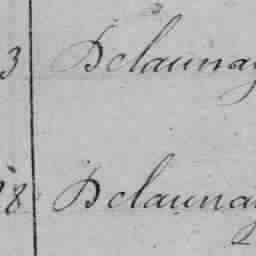 3 Delaunay
8 Delaunay